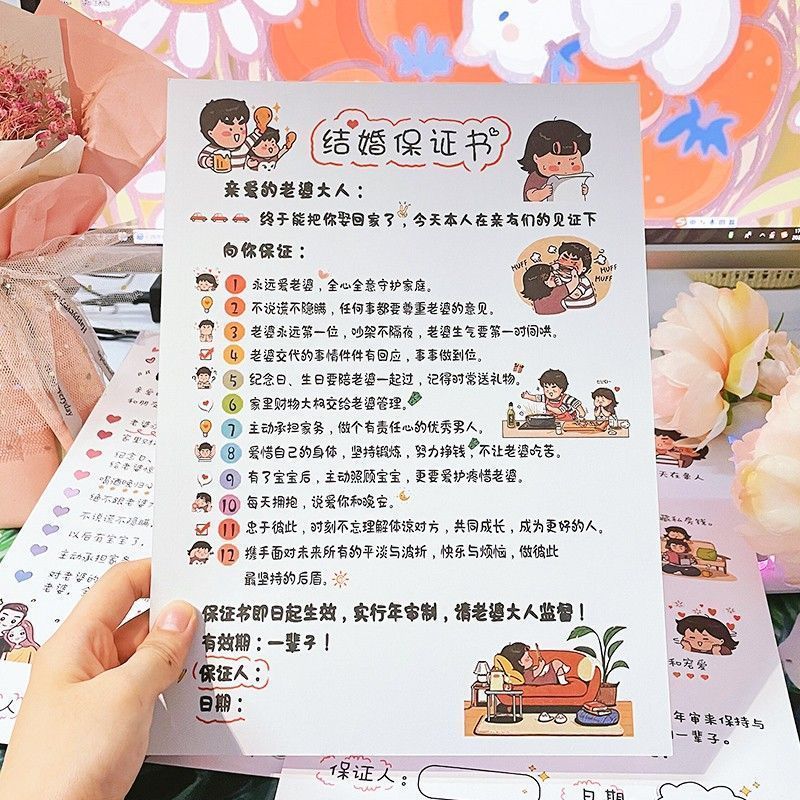 结婚保证书
亲爱的老婆大人：
终于能把你娶回家了，今天本人在亲友们的见证下
向你保证：
1 永远爱老婆，全心全意守护家庭。
2 不说谎不隐瞒，任何事都要尊重老婆的意见。
3 老婆永远第一位，吵架不隔夜，老婆生气要第一时间哄。
4 老婆交代的事情件件有回应，事事做到位。
5 纪念日、生日要陪老婆一起过，记得时常送礼物。
6 家里财物大权交给老婆管理。
7 主动承担家务，做个有责任心的优秀男人。
8 爱惜自己的身体，坚持锻炼，努力挣钱，不让老婆吃苦。
9 有了宝宝后，主动照顾宝宝，更要爱护疼惜老婆。
10 每天拥抱，说爱你和晚安。
11 忠于彼此，时刻不忘理解体谅对方，共同成长，成为更好的人。
12 携手面对未来所有的平淡与波折，快乐与烦恼，做彼此
最坚持的后盾。
保证书即日起生效，实行年审制，请老婆大人监督！
有效期：一辈子！
保证人：
日期：
HUFF
MUFF
MUFF
家里财
纪念日、
喝酒晚归
绝不跟老婆
不说谎不隐瞒
以后有宝宝了
主动承担家务
对老婆的
老婆，全
天在亲人
藏私房钱。
和宠爱
年审来保持与
一辈子。
保证人：
日期